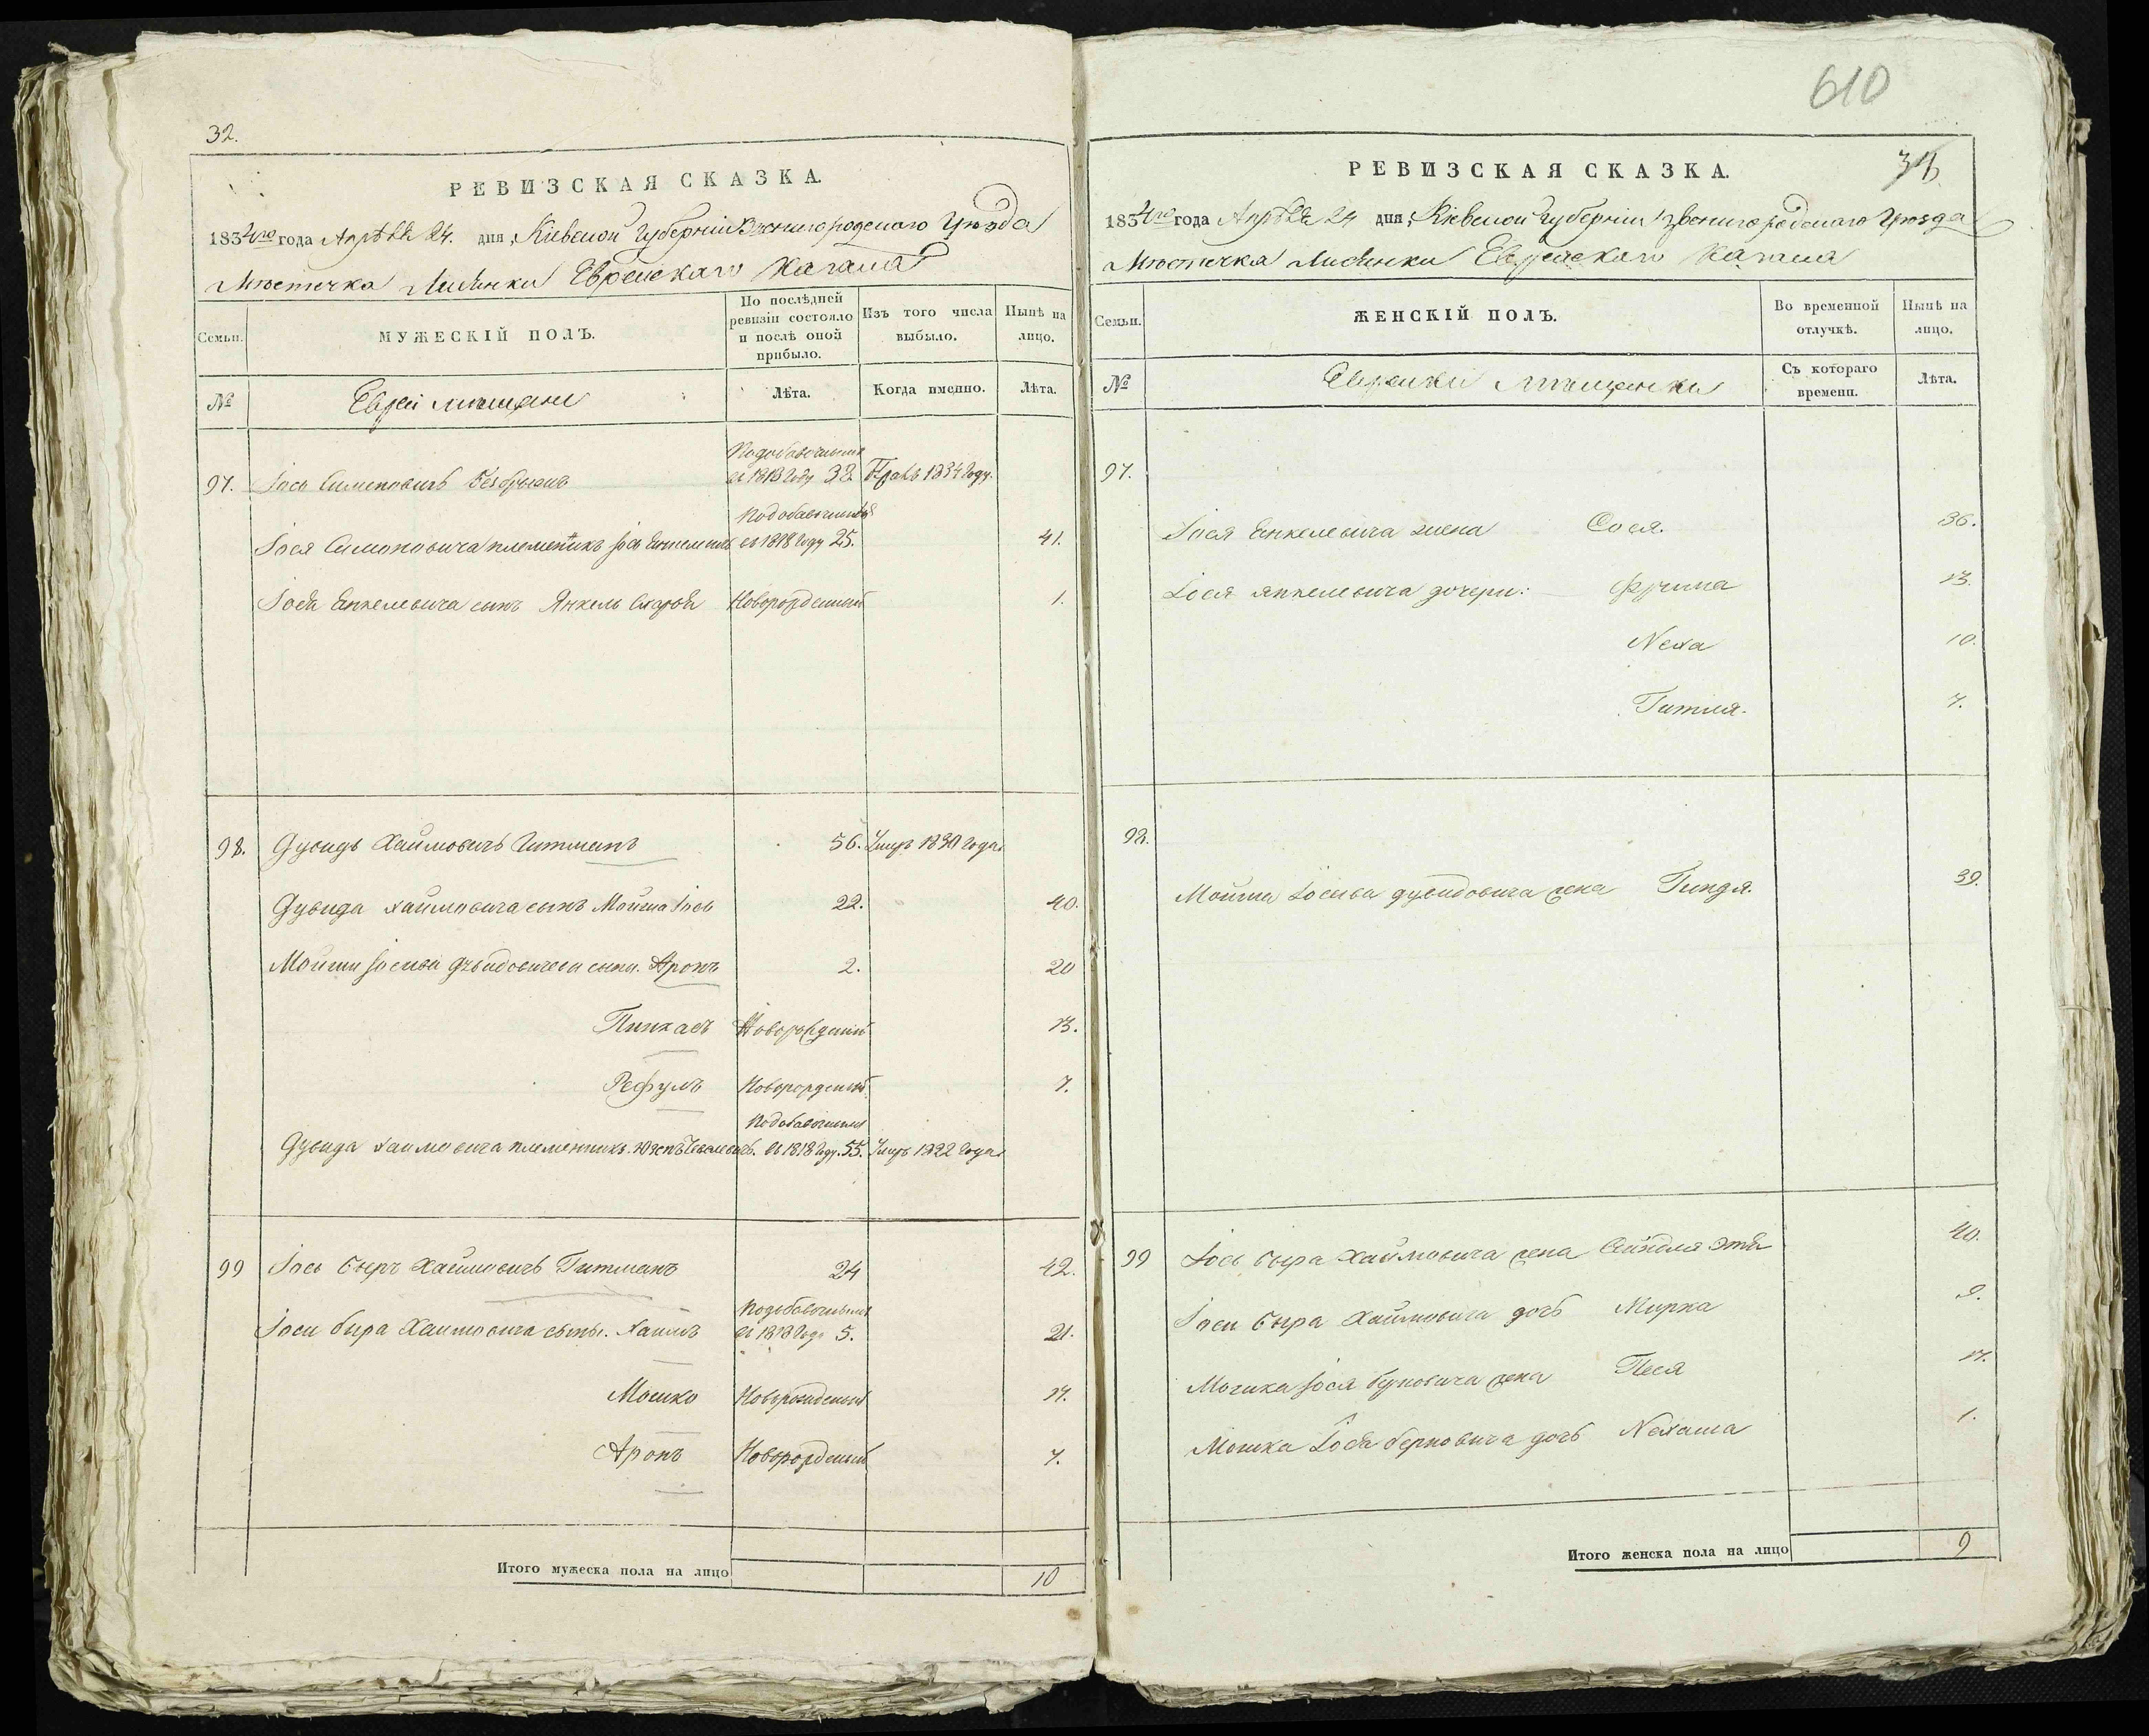 32.
РЕВИЗСКАЯ СКАЗКА.
1834го года Апрѣля 24. дня, Кіевской Губерніи Звенигородскаго Уѣзда
Мѣстечка Лисянки Еврейскаго Кагала
Семьи.
МУЖЕСКІЙ ПОЛЪ.
По послѣдней ревизіи состояло и послѣ оной прибыло.
Изъ того числа выбыло.
Нынѣ на лицо.
№
Евреи мѣщане
Лѣта.
Когда именно.
Лѣта.
97. Іось Симоновичъ 1818 году 32 1834 году.
Іося Симоновича племеникъ Іось Енкелевичъ 1818 году 25. 41.
Іося Енкелевича сынъ Янкель Новорожденный 1.
98. Дувидъ Хаймовичъ Гитманъ 56. Умръ 1830 года
Дувида Хаимовича сынъ Мойша Іось 22. 40.
Мойши Іосива Дувидовича сыны. Аронъ 2. 20
Пинхасъ Новорожденій 13.
Рефулъ Новорожденый 7.
Дувида Хаимовича племенникъ 1818 году. 55. Умръ 1822 года
99 Іось Беръ Хаймовичъ Гитманъ 24 42.
Іоси Бера Хаимовича сыны. Хаимъ 1818 года 5. 21.
Мошко Новорожденый 17.
Аронъ Новорожденый 7.
Итого мужеска пола на лицо 10
610
РЕВИЗСКАЯ СКАЗКА.
1834го года Апрѣля 24 дня, Кіевской Губерніи Звенигородскаго Уѣзда
Мѣстечка Лисянки Еврейскаго Кагала
Семьи.
ЖЕНСКІЙ ПОЛЪ.
Во временной отлучкѣ.
Нынѣ на лицо.
№
Еврейки мѣщанки
Съ котораго времени.
Лѣта.
97.
Іося Енкелевича жена Сося. 36.
Іося Янкелевича дочери: Фрима 13.
Неха 10.
Гитля. 7.
98.
Мойша Іосива Дувидовича жена Гиндя. 39.
99 Іось Бера Хаймовича жена 40.
Іоси Бера Хаймовича дочь Мирка 9.
Мошка Іося Берковича жена Песя 17.
Мошка Іося Берковича дочь Нехама 1.
Итого женска пола на лицо 9